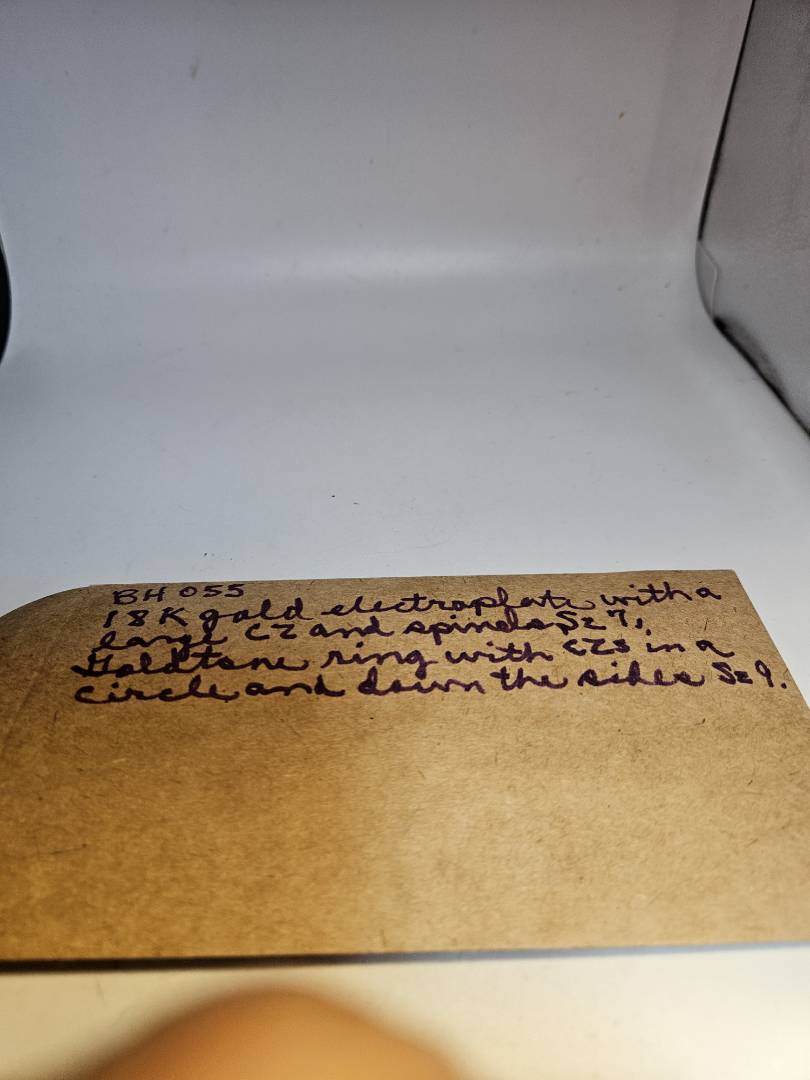 BH 055
18K gold electroplate with a
large CZ and spinels Sz 7,
Goldtone ring with CZs in a
circle and down the sides Sz 9.